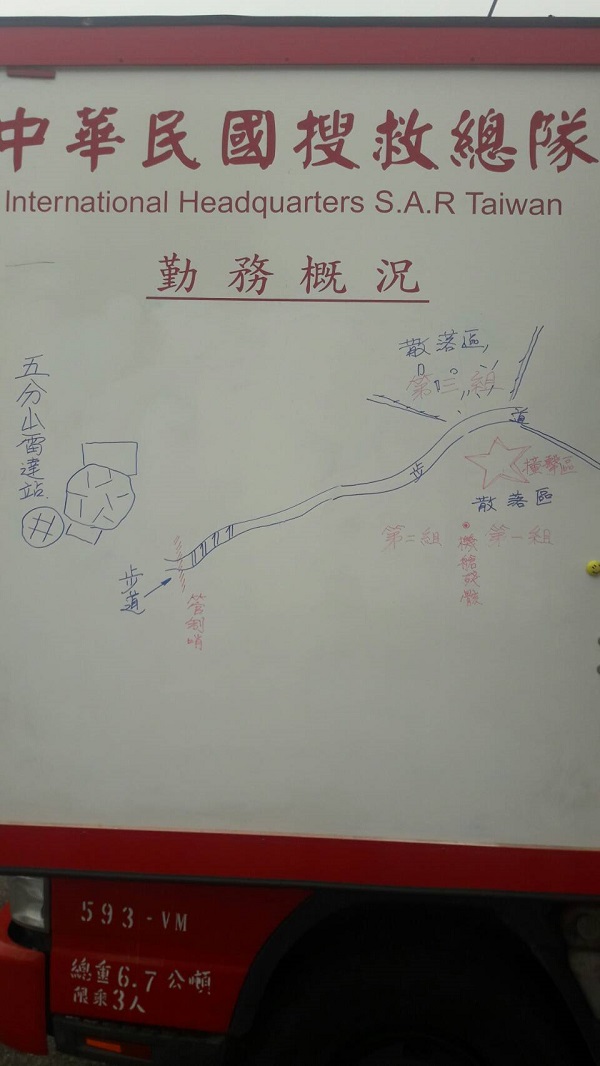 中華民國搜救總隊
International Headquarters S.A.R Taiwan
勤務概況
散落區
第三組
五分山雷達站
步道
撞擊區
散落區
第二組
第一組
機艙殘骸
步道
管制哨
593-VM
總重6.7公噸
限乘3人